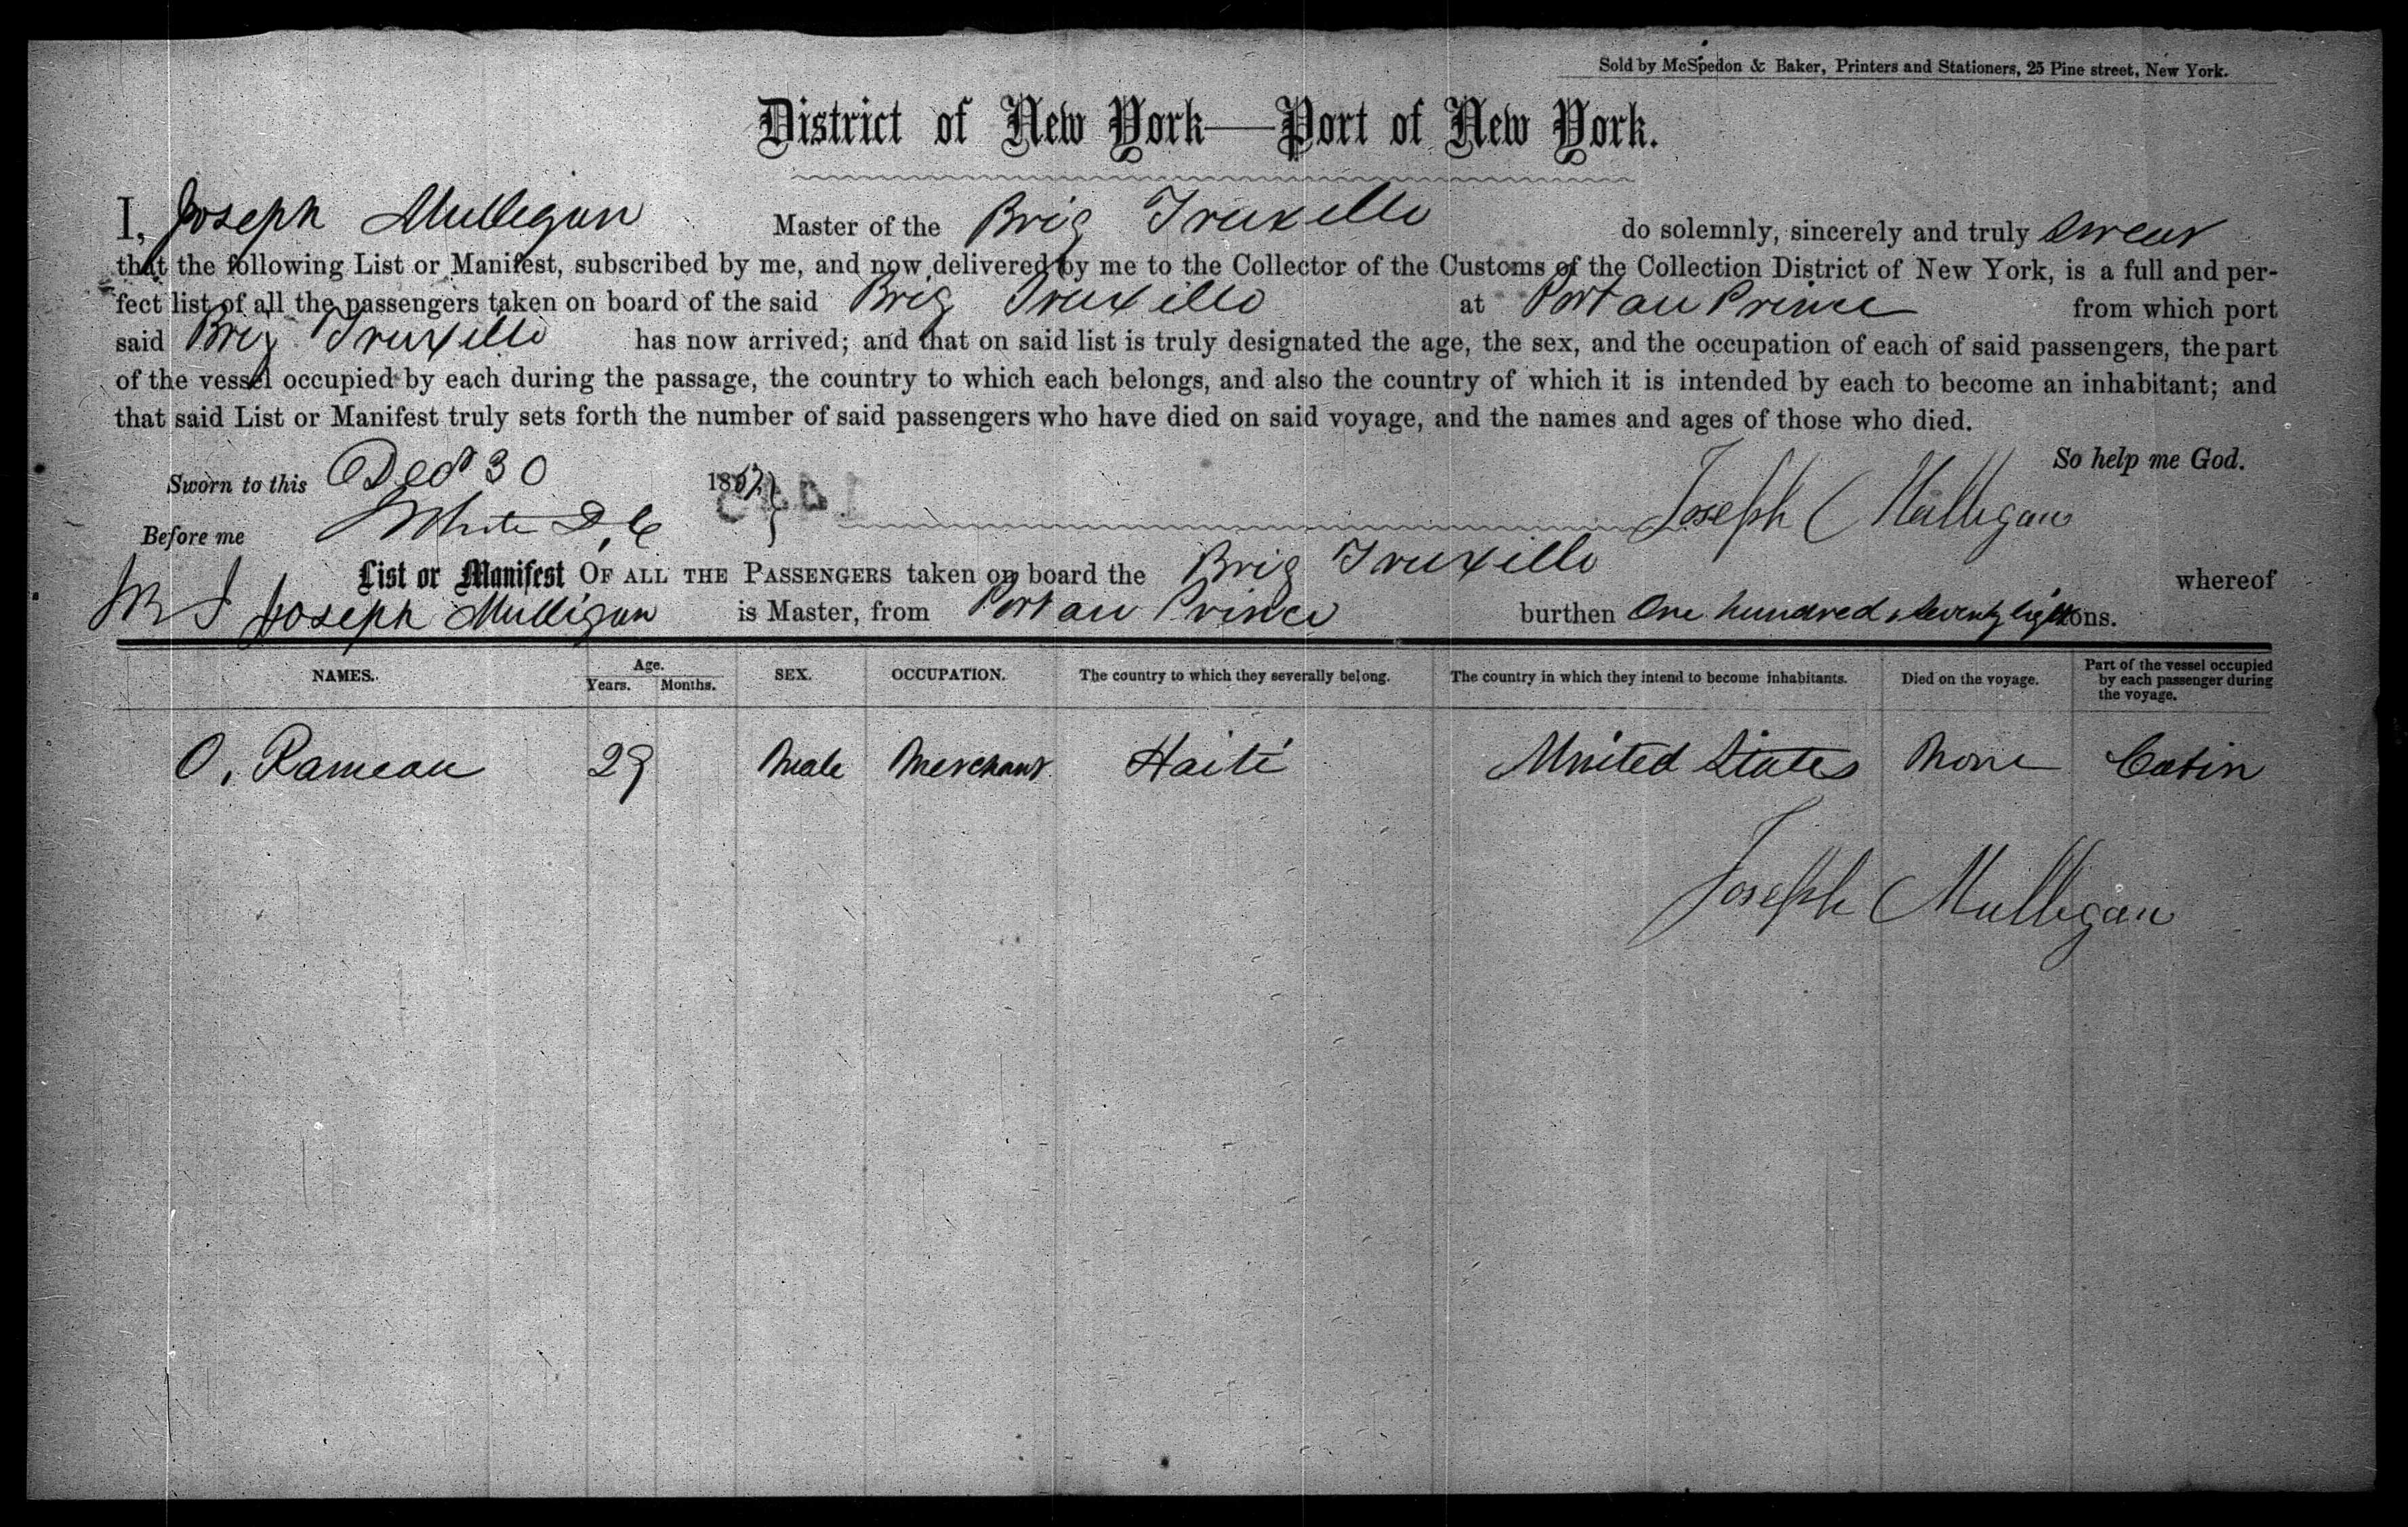 Sold by McSpedon & Baker, Printers and Stationers, 25 Pine street, New York.
District of New York—Port of New York.
I, Joseph Mulligan Master of the Brig Truxillo do solemnly, sincerely and truly swear
that the following List or Manifest, subscribed by me, and now delivered by me to the Collector of the Customs of the Collection District of New York, is a full and per-
fect list of all the passengers taken on board of the said Brig Truxillo at Port au Prince from which port
said Brig Truxillo has now arrived; and that on said list is truly designated the age, the sex, and the occupation of each of said passengers, the part
of the vessel occupied by each during the passage, the country to which each belongs, and also the country of which it is intended by each to become an inhabitant; and
that said List or Manifest truly sets forth the number of said passengers who have died on said voyage, and the names and ages of those who died.
So help me God.
Sworn to this Decr 30 186
Before me White D.C Joseph Mulligan
List or Manifest OF ALL THE PASSENGERS taken on board the Brig Truxillo whereof
Joseph Mulligan is Master, from Port au Prince burthen One hundred & seventy eight tons.
NAMES. Age. Years. Months. SEX. OCCUPATION. The country to which they severally belong. The country in which they intend to become inhabitants. Died on the voyage. Part of the vessel occupied by each passenger during the voyage.
O. Rameau 29 Male Merchant Haiti United States None Cabin
Joseph Mulligan